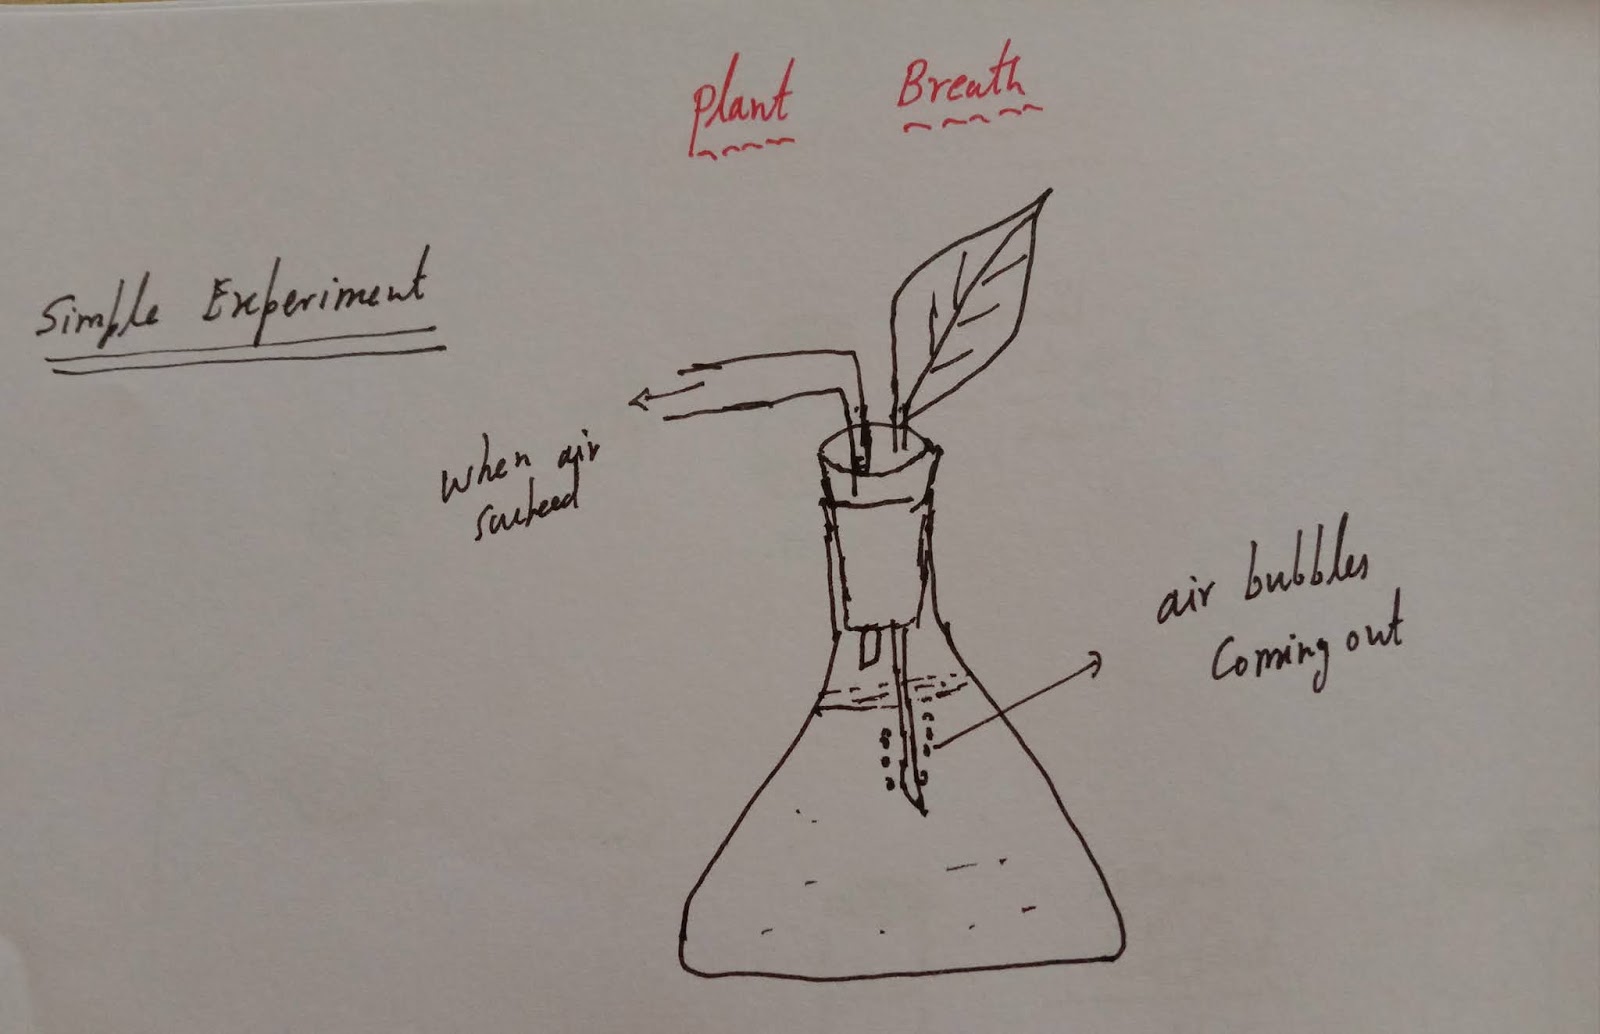 Plant Breath
Simple Experiment
when air
sucked
air bubbles
Coming out